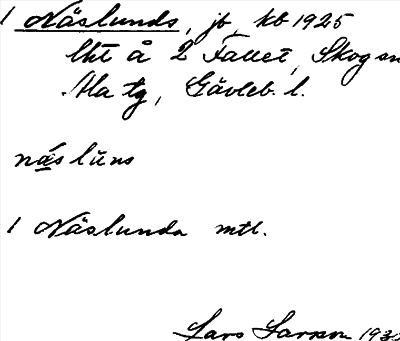 1 Näslunds, jb kb 1925
lht å 2 Fallet, Skogsn
Ala tg, Gävleb. l.
näslūns
1 Näslunda mtl.
Lars Larsson 193